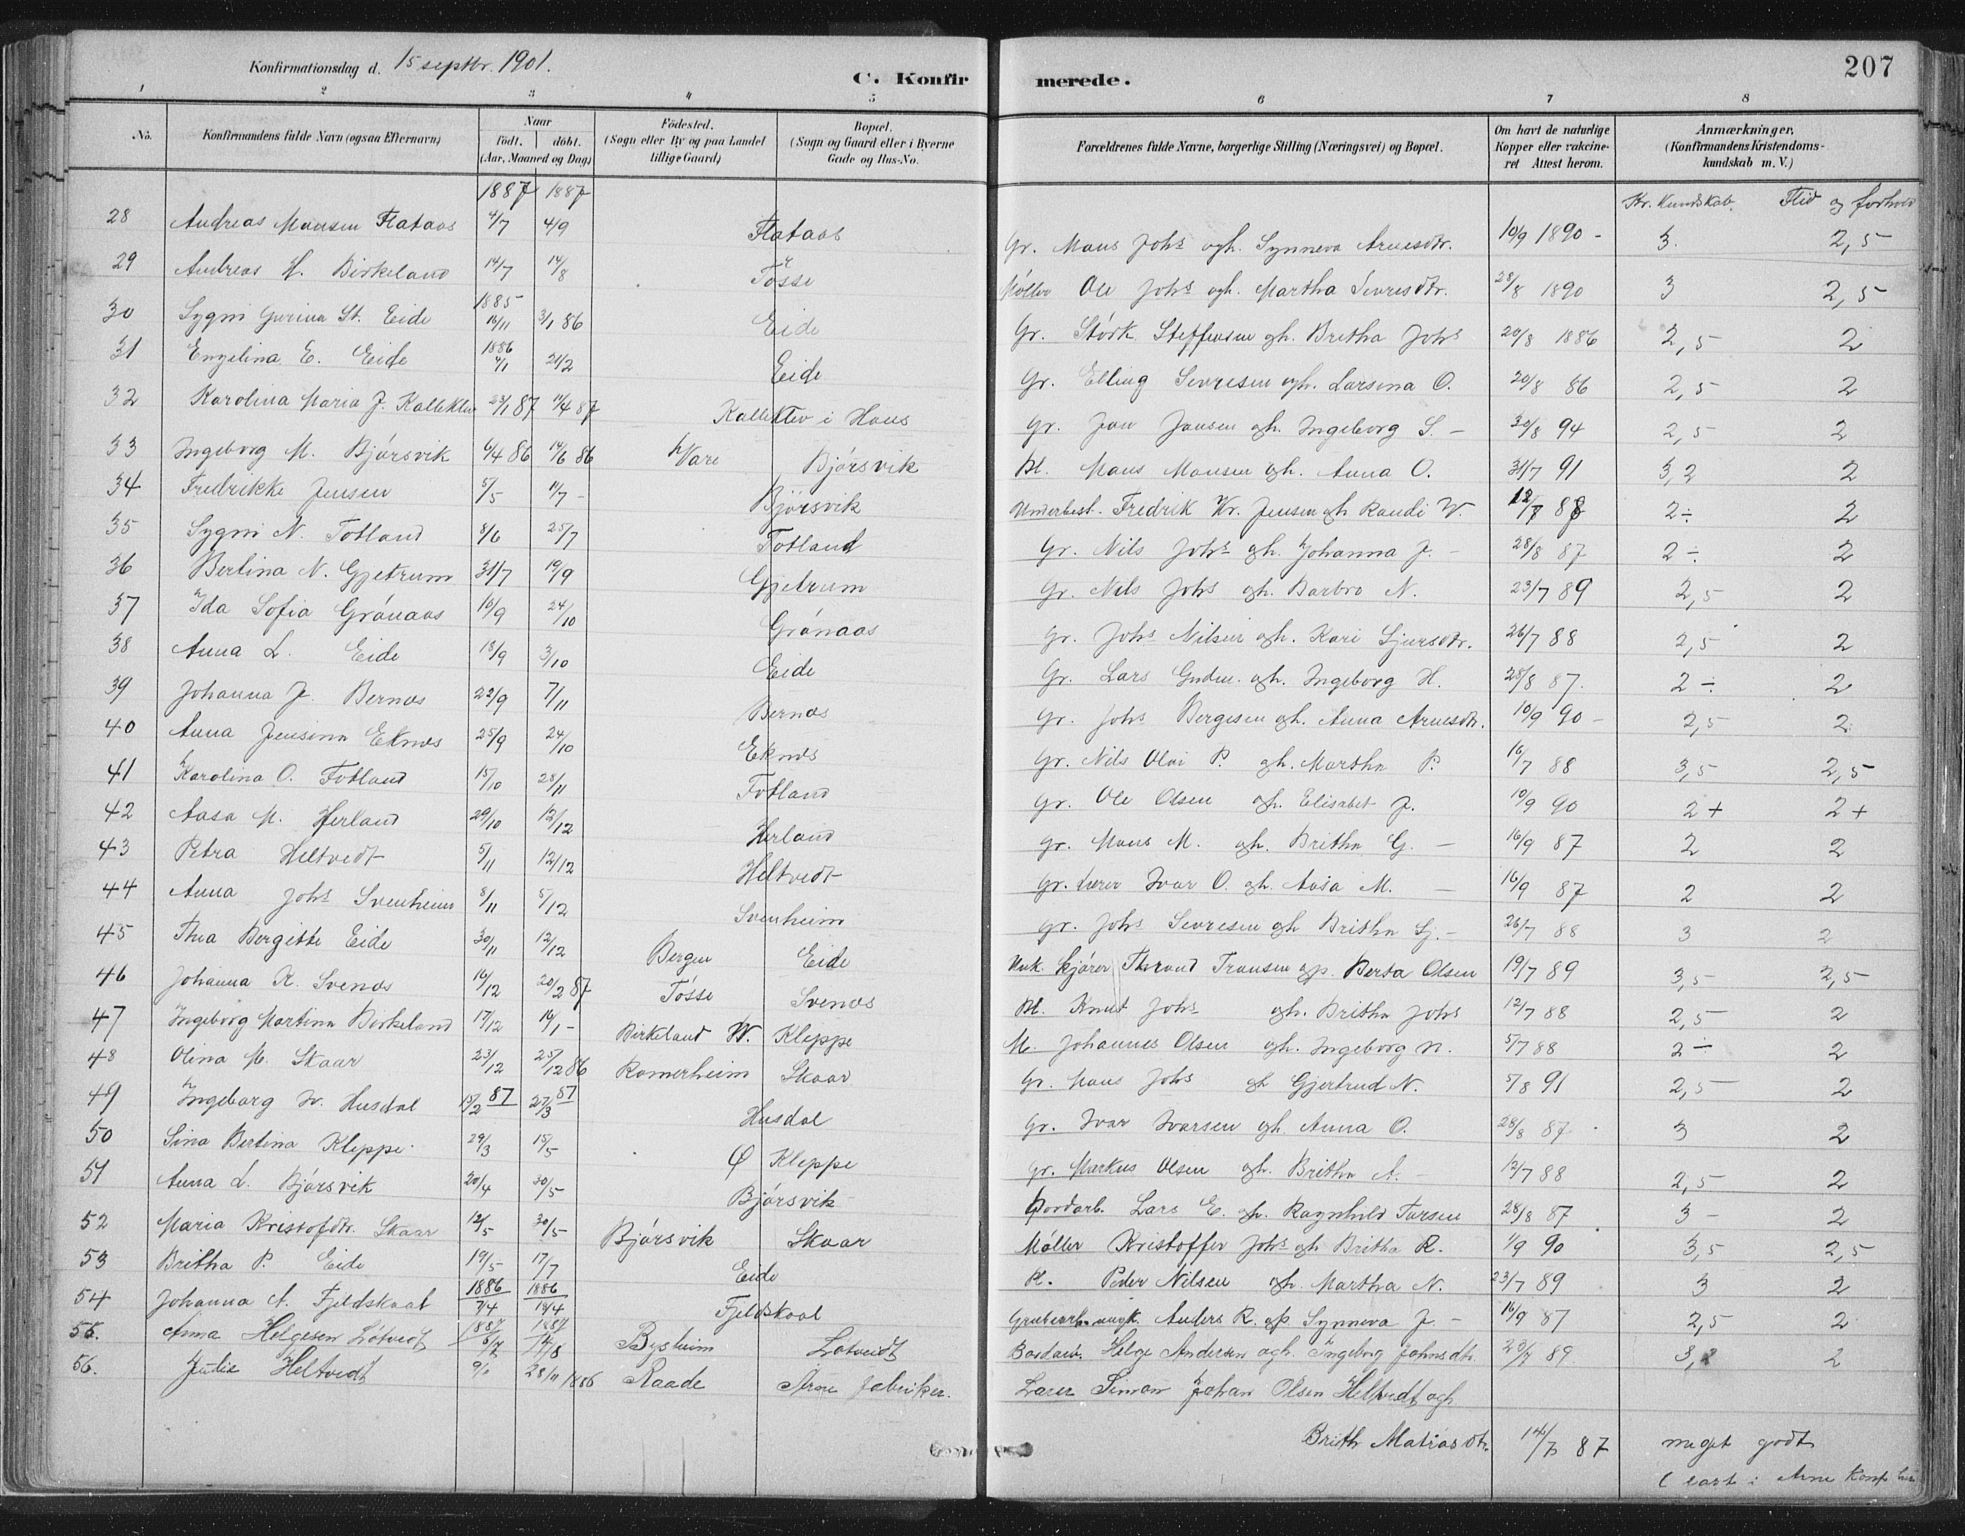 Konfirmationsdag d. 15 septbr. 1901.
C. Konfirmerede.
207
1 2 3 4 5 6 7 8
No. Konfirmandens fulde Navn (ogsaa Efternavn) Naar født. døbt. (Aar, Maaned og Dag) Fødested. (Sogn eller By og paa Landet tillige Gaard) Bopæl. (Sogn og Gaard eller i Byerne Gade og Hus-No. Forældrenes fulde Navne, borgerlige Stilling (Næringsvei) og Bopæl. Om havt de naturlige Kopper eller vakcineret Attest herom. Anmærkninger, (Konfirmandens Kristendomskundskab m. V.)
1887 1887 Kr. Kundskab. Flid og forhold
28 Andreas Monsen Flataas 4/7 4/9 Flataas Gr. Mons Johs ogh. Synneva Arnesdtr. 10/9 1890 - 3. 2,5
29 Andreas H. Birkeland 14/7 14/8 Tösse Møller Ole Johs ogh. Martha Sevresdtr. 28/8 1890 3 2,5
30 Sygni Gurina St. Eide 1885 16/11 3/1 86 Eide Gr. Störk Steffensen gh. Britha Johs 20/8 1886 2,5 2
31 Engelina E. Eide 1886 4/1 21/2 Eide Gr. Elling Sevresen ogh. Larsina O. 20/8 86 2,5 2
32 Karolina Maria J. Kallekleiv 23/1 87 11/4 87 Kallekleiv i Hous Gr. Jon Jonsen ogh. Ingeborg S. - 30/8 94 2,5 2
33 Ingeborg M. Bjørsvik 6/4 86 14/6 86 Vare Bjørsvik Pl. Mons Monsen ogh. Anna O. 31/7 91 3,2 2
34 Fredrikke Jensen 5/5 11/7 - Bjørsvik Underbest. Fredrik Kr. Jensen ogh Randi W. 12/7 88 2÷ 2
35 Sygni N. Totland 8/6 25/7 Totland Gr. Nils Johs ogh. Johanna J. - 28/8 87 2÷ 2
36 Bertina N. Gjetrum 31/7 19/9 Gjetrum Gr. Nils Johs ogh. Barbro N. 23/7 89 2,5 2
37 Ida Sofia Grønaas 10/9 24/10 Grønaas Gr. Johs Nilsen ogh. Kari Sjursdtr. 26/7 88 2,5 2
38 Anna L. Eide 13/9 3/10 Eide Gr. Lars Gudm. ogh. Ingeborg H. 28/8 87. 2÷ 2
39 Johanna J. Bernæs 22/9 7/11 Bernæs Gr. Johs Bergesen gh. Anna Arnesdtr. 10/9 90 - 2,5 2
40 Anna Jensina Eknæs 25/9 24/10 Eknæs Gr. Nils Olai P. gh. Martha P. 16/7 88 3,5 2,5
41 Karolina O. Totland 15/10 28/11 Totland Gr. Ole Olsen gh. Elisabet J. 10/9 90 2+ 2+
42 Aasa M. Herland 29/10 12/12 Herland Gr. Mons M. gh. Britha G. - 16/9 87 2 2
43 Petra Heltvedt 5/11 12/12 Heltvedt Gr. Lærer Ivar O. gh. Aasa M. - 16/9 87 2 2
44 Anna Johs Svenheim 8/11 5/12 Svenheim Gr. Johs Sevresen gh Britha Sj. - 26/7 88 3 2
45 Thea Bergitte Eide 30/11 12/12 Bergen Eide kjører Thrond Tronsen op. Berta Olsen 19/7 89 3,5 2,5
46 Johanna K. Svenæs 16/12 20/2 87 Tösse Svenæs Pl. Knut Johs ogh. Britha Johs 12/7 88 2,5 2
47 Ingeborg Martina Birkeland 17/12 16/1 - Birkeland N. Kleppe M. Johannes Olsen ogh. Ingeborg N. 5/7 88 2÷ 2
48 Olina M. Skaar 23/12 25/12 86 Romerheim Skaar Gr. Mons Johs gh Gjertrud N. 5/8 91 2,5 2
49 Ingeborg Iv. Husdal 15/2 87 27/3 87 Husdal Gr. Ivar Ivarsen gh. Anna O. 28/8 87 3 2
50 Sina Bertina Kleppe 29/3 15/5 Ø Kleppe Gr. Markus Olsen gh. Britha A. - 12/7 88 2,5 2
51 Anna L. Bjørsvik 20/4 30/5 Bjørsvik Jordarb. Lars E. gh. Ragnhild Torsen 28/8 87 3 - 2
52 Maria Kristofdtr. Skaar 12/5 30/5 Bjørsvik Skaar Møller Kristoffer Johs gh Britha R. 1/9 90 3,5 2,5
53 Britha P. Eide 19/5 17/7 Eide Pl. Peder Nilsen ogh. Martha N. 23/7 89 3 2
54 Johanna A. Fjeldskaal 1886 7/4 1886 18/4 Fjeldskaal Grubearb. Anders R. op Synneva J. - 16/9 87 2,5 2
55. Anna Helgesen Løtveidt 1887 6/7 1887 14/8 Bysheim Løtveidt Helge Andersen ogh. Ingeborg Johnsdtr. 23/7 89 3, 2
56. Julie Heltvedt 28/11 1886 Raade Arne fabriker. Lærer Simon Johan Olsen Heltvedt ogh
Brith Matiasdtr. 14/7 87 meget godt
( i Arne